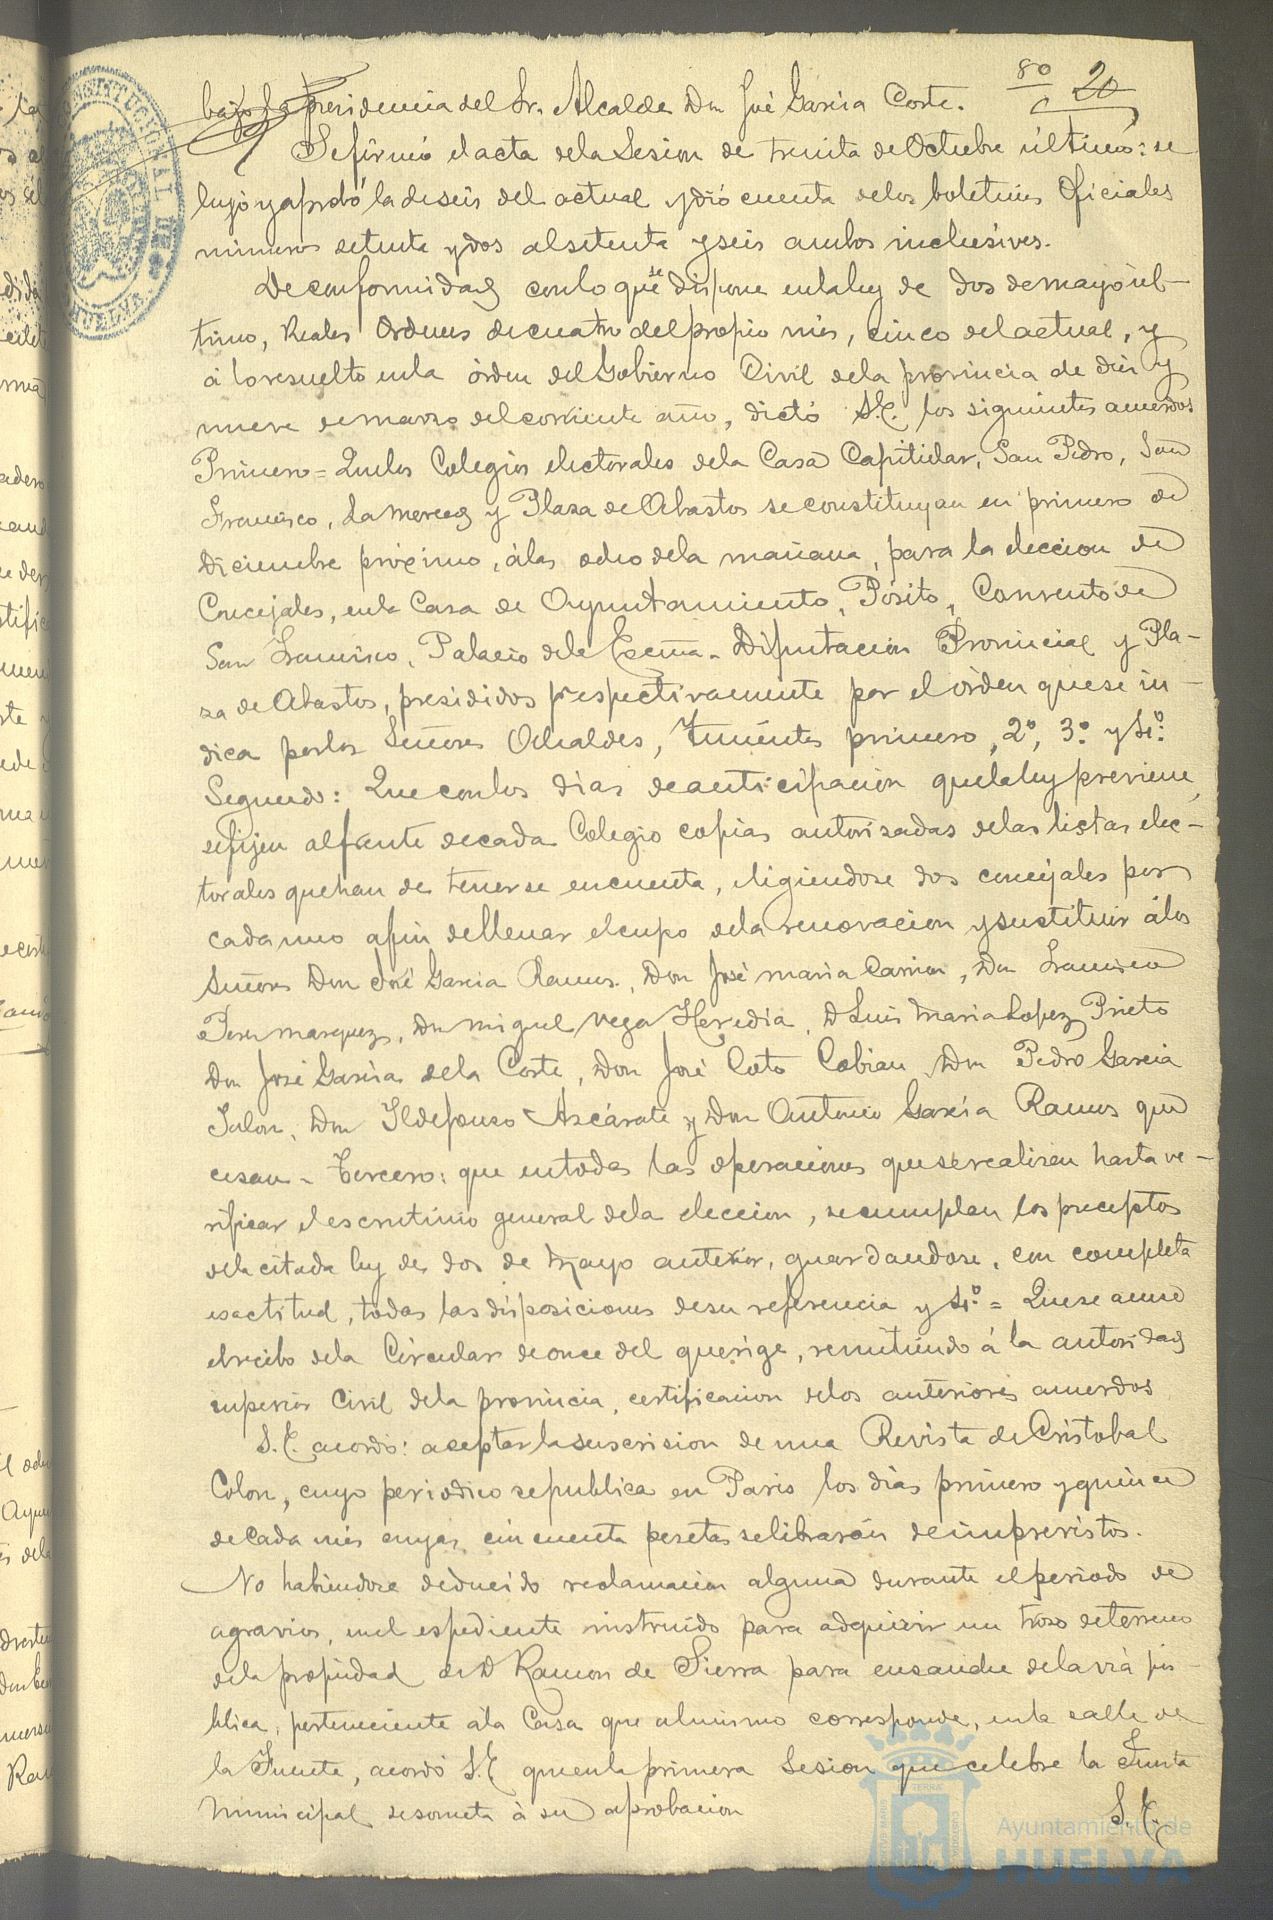 80 20
bajo la presidencia del Sr. Alcalde Dn José Garcia Corte.
Se firmó el acta de la Sesion de treinta de Octubre último: se
leyó y aprobó la de seis del actual y dió cuenta de los boletines Oficiales
números setenta y dos al setenta y seis ambos inclusives.
De conformidad con lo que se dispone en la ley de dos de mayo úl-
timo, Reales Ordenes de cuatro del propio mes, cinco del actual, y
á lo resuelto en la órden del Gobierno Civil de la provincia de diez y
nueve de marzo del corriente año, dictó S.E. los siguientes acuerdos
Primero = Que los Colegios electorales de la Casa Capitular, San Pedro, San
Francisco, La Merced y Plaza de Abastos se constituyan en primero de
Diciembre próximo, á las ocho de la mañana, para la eleccion de
Concejales, en la Casa de Ayuntamiento, Pósito, Convento de
San Francisco, Palacio de la Excma. Diputacion Provincial y Pla-
za de Abastos, presididos respectivamente por el órden que se in-
dica por los Señores Alcaldes, Tenientes primero, 2º, 3º y 4º.
Segundo: Que con los dias de anticipacion que la ley previene,
se fijen al frente de cada Colegio copias autorizadas de las listas elec-
torales que han de tenerse en cuenta, eligiendose dos concejales por
cada uno a fin de llenar el cupo de la renovacion y sustituir á los
Señores Don José Garcia Ramos, Don José Maria Carrion, Dn Francisco
Perez Marquez, Dn Miguel Vega Heredia, D Luis Maria Lopez Prieto
Dn José Garcia de la Corte, Don José Coto Cobian Dn Pedro Garcia
Jalon, Dn Ildefonso Azcárate y Don Antonio Garcia Ramos que
cesan - Tercero: que en todas las operaciones que se realizen hasta ve-
rificar el escrutinio general de la eleccion, se cumplan los preceptos
de la citada ley de dos de Mayo anterior, guardandose, con completa
exactitud, todas las disposiciones de su referencia y 4º = Que se acuse
el recibo de la Circular de once del que rige, remitiendo á la autoridad
superior Civil de la provincia, certificacion de los anteriores acuerdos
S.E. acordó: aceptar la suscrision de una Revista de Cristobal
Colon, cuyo periodico se publica en Paris los dias primero y quince
de cada mes cuyas cincuenta pesetas se librarán de imprevistos.
No habiendose deducido reclamacion alguna durante el periodo de
agravios, en el espediente instruido para adquirir un trozo de terreno
de la propiedad de D Ramon de Sierra para ensanche de la via pú-
blica, perteneciente á la Casa que al mismo corresponde, en la calle de
la Fuente, acordó S.E. que en la primera Sesion que celebre la Junta
Municipal se someta á su aprobacion
S.E.
Ayuntamiento de
HUELVA